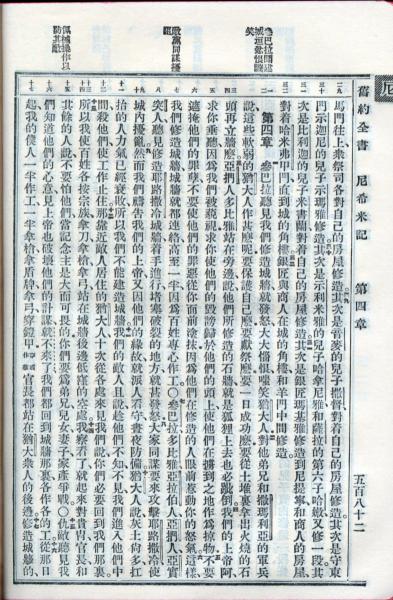 尼
舊約全書 尼希米記 第四章 五百八十二
參巴拉聞建
城垣怒恨嗤
笑
敵黨同謀擾
亂
備械操作以
防其敵
馬門往上衆祭司各對自己的房屋修造其次是音麥的兒子撒督對着自己的房屋修造其次是守東
門示迦尼的兒子示瑪雅修造其次是示利米雅的兒子哈拿尼雅和薩拉的第六子哈嫩又修一段其
次是比利迦的兒子米書蘭對着自己的房屋修造其次是銀匠瑪基雅修造到尼提寧和商人的房屋
對着哈米弗甲門直到城的角樓銀匠與商人在城的角樓和羊門中間修造
第四章 參巴拉聽見我們修造城牆就發怒大大惱恨嗤笑猶大人對他弟兄和撒瑪利亞的軍兵
說這些軟弱的猶大人作甚麼呢要保護自己麼要獻祭麼要一日成功麼要從土堆裏拿出火燒的石
頭再立牆麼亞捫人多比雅站在旁邊說他們所修造的石牆就是狐狸上去也必跐倒我們的上帝阿
求你垂聽因爲我們被藐視求你使他們的毀謗歸於他們的頭上使他們在擄到之地作爲掠物不要
遮掩他們的罪愆不要使他們的罪惡從你面前塗抹因爲他們在修造的人眼前惹動你的怒氣這樣
我們修造城牆城牆就都連絡高至一半因爲百姓專心作工○參巴拉多比雅亞拉伯人亞捫人亞實
突人聽見修造耶路撒冷城牆着手進行堵塞破裂的地方就甚發怒大家同謀要來攻擊耶路撒冷使
城內擾亂然而我們禱告我們的上帝又因他們的緣故就派人看守晝夜防備猶大人說灰土尙多扛
抬的人力氣已經衰敗所以我們不能建造城牆我們的敵人且說趁他們不知不見我們進入他們中
間殺他們使工作止住那靠近敵人居住的猶大人十次從各處來見我們說你們必要囘到我們那裏
所以我使百姓各按宗族拿刀拿槍拿弓站在城牆後邊低窪的空處我察看了就起來對貴冑官長和
其餘的人說不要怕他們當記念主是大而可畏的你們要爲弟兄兒女妻子家產爭戰○仇敵聽見我
們知道他們的心意見上帝也破壞他們的計謀就不來了我們都囘到城牆那裏各作各的工從那日
起我的僕人一半作工一半拿槍拿盾牌拿弓穿鎧甲官長都站在猶大衆人的後邊修造城牆的